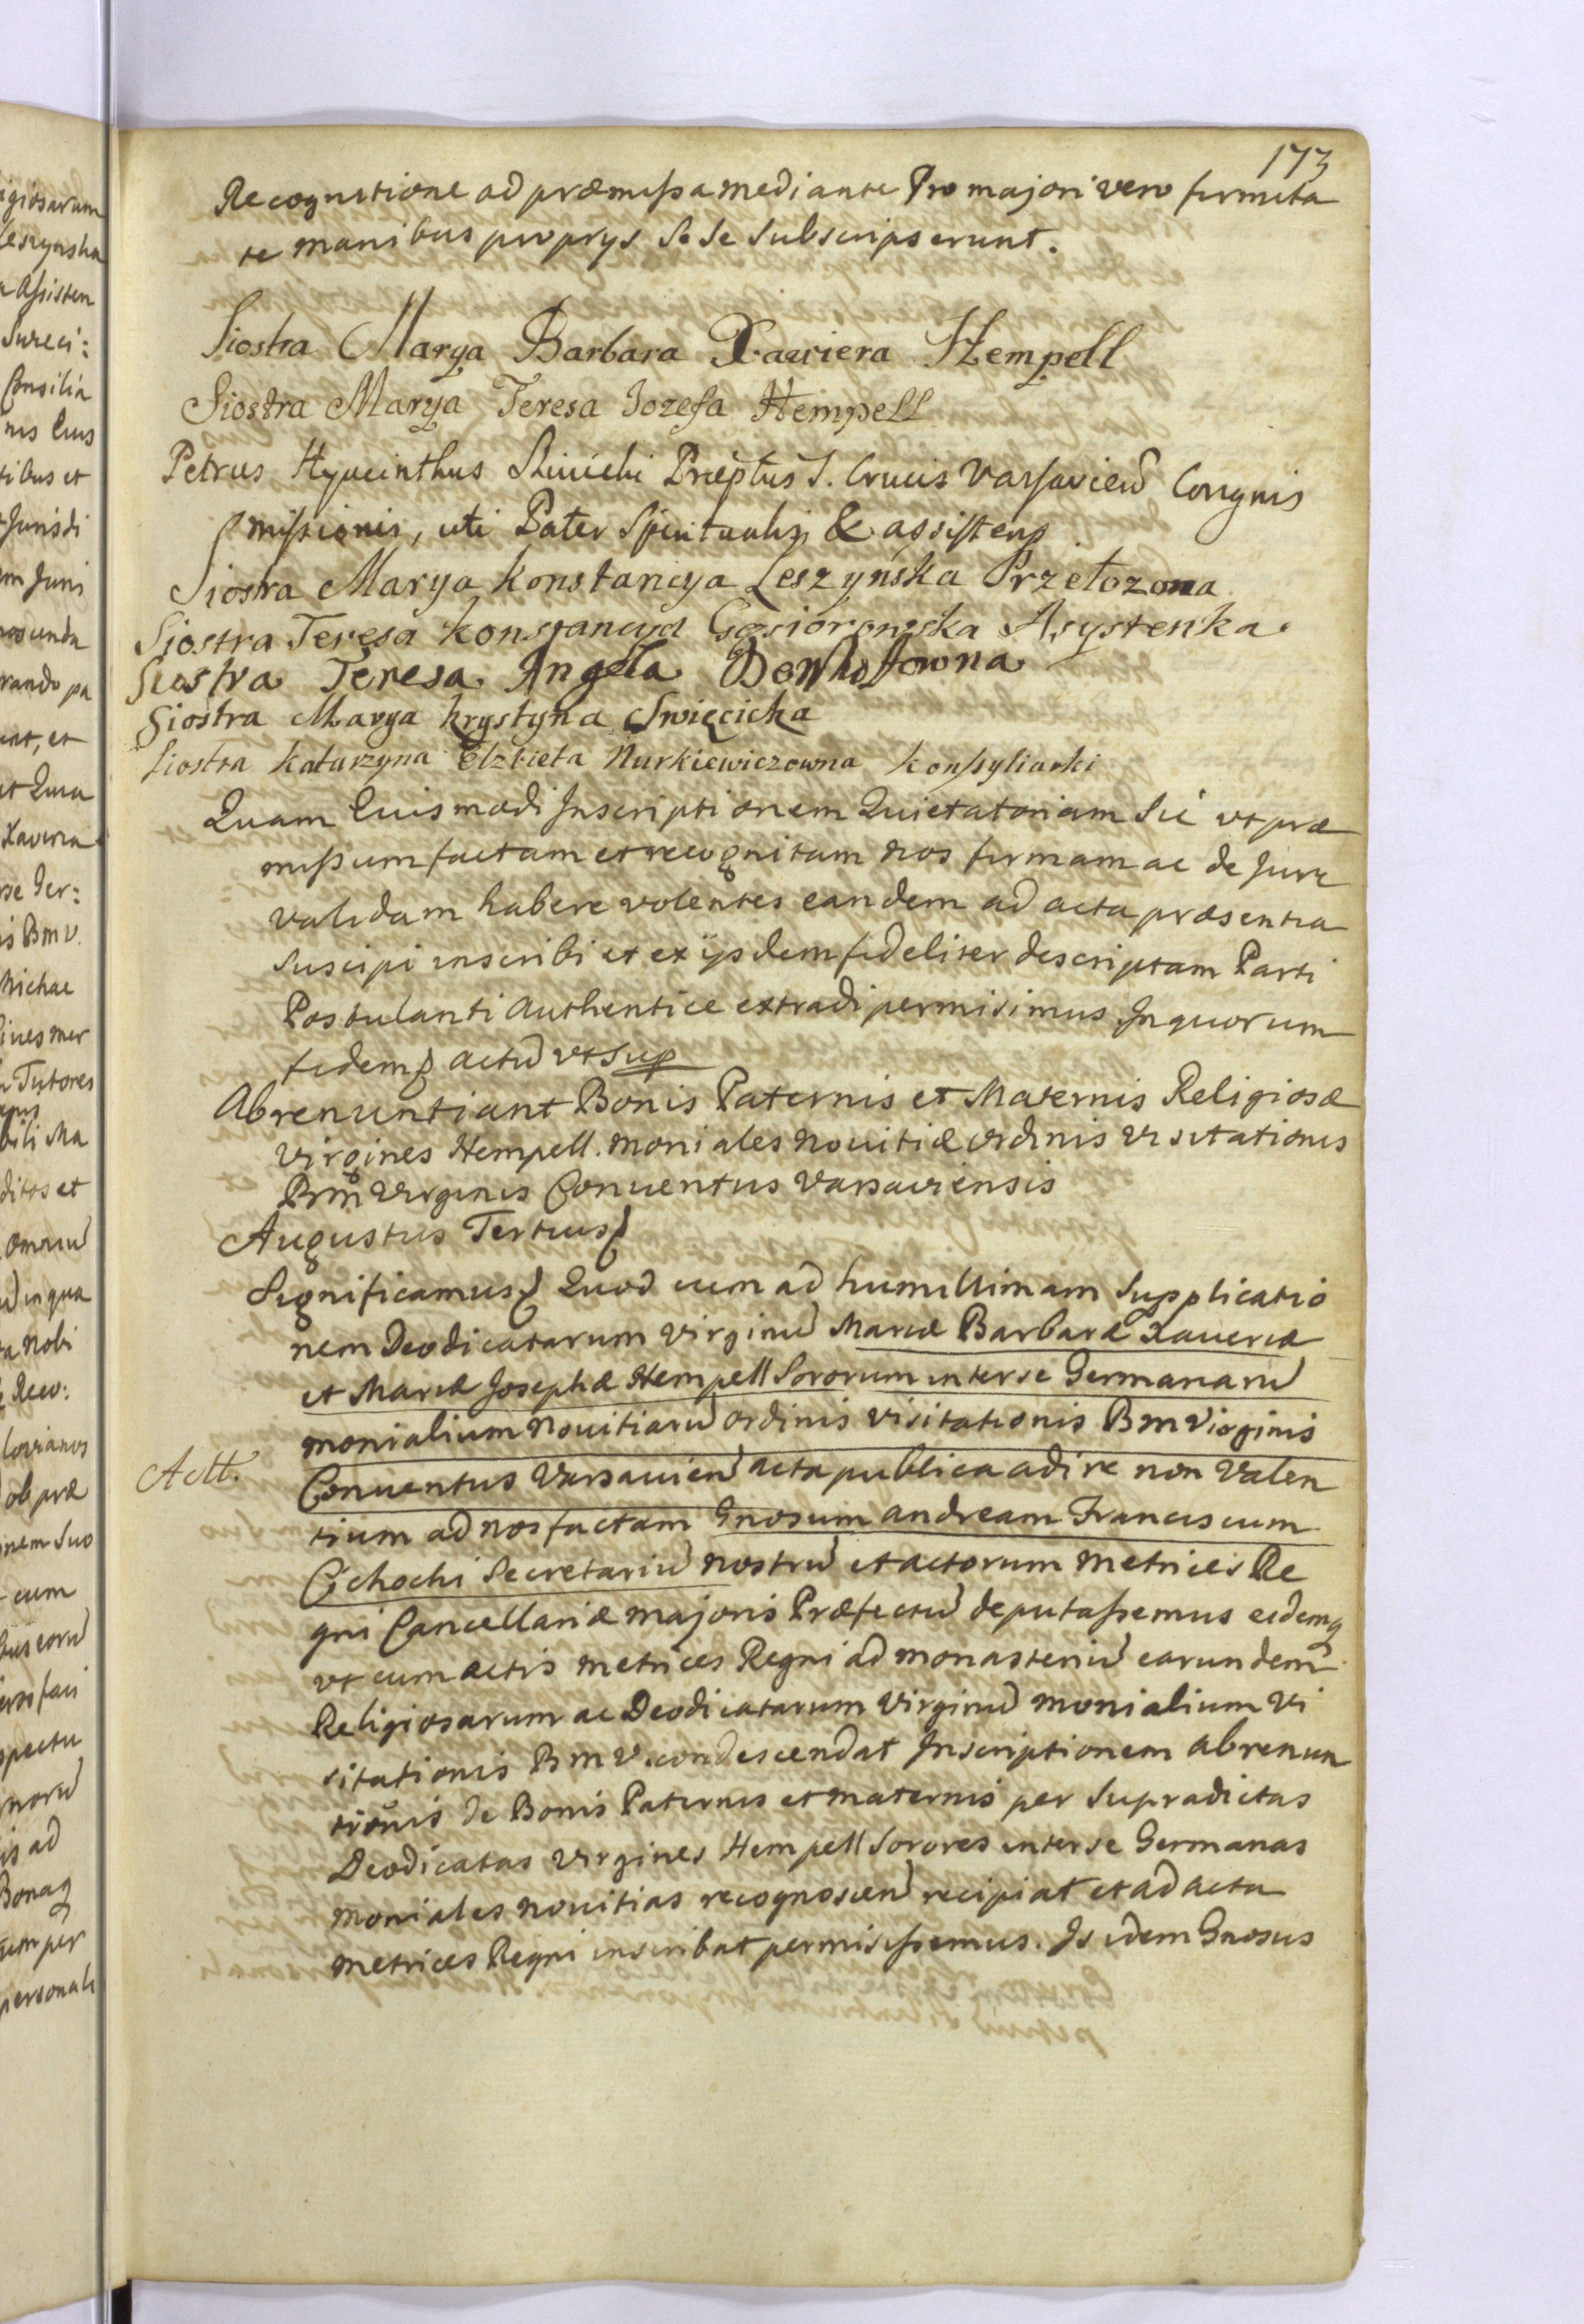 173
Recognitione ad præmissa mediante Pro majori vero firmita
te manibus proprys Se Se Subscripserunt.
Siostra Marya Barbara Xawiera Hempell
Siostra Marya Teresa Jozefa Hempell
Petrus Hyacinthus Præptus S. Crucis Varsavień Congnis
Missionis, uti Pater Spiritualis & assistens
Siostra Marya Konstancya Leszyńska Przełozona
Siostra Teresa Konstancya Gąsiorowska Asystenka.
Siostra Teresa Angela
Siostra Marya Krystyna Swięcicka
Siostra Katarzyna Elzbieta Nurkiewiczowna Konsyliarki
Quam Eiusmodi Inscriptionem Quietatoriam Sic ut præ
missum factam et recognitam nos firmam ac de Jure
validam habere volentes eandem ad acta præsentia
suscipi inscribi et ex ijsdem fideliter descriptam Parti
Postulanti Authentice extradi permisimus In quorum
fidem actū ut Sup
Abrenuntiant Bonis Paternis et Maternis Religiosæ
Virgines Hempell. Moniales Novitiæ ordinis Visitationis
Bmæ Virginis Conventus Varsaviensis
Augustus Tertius
Significamus Quod cum ad humillimam Supplicatio
nem Deodicatarum Virginū Mariæ Barbaræ Xaveriæ
et Mariæ Josephæ Hempell Sororum inter se Germanarū
monialium Novitiarū ordinis Visitationis Bm Virginis
Actt.
Conventus Varsavień acta publica adire non Valen
tium ad nos factam Gnosum Andream Franciscum
Cichocki Secretariū nostrū et actorum Metrices Re
gni Cancellariæ Majoris Præfectū deputassemus eidemq
ut cum actis Metrices Regni ad Monasteriū earundem
Religiosarum ac Deodicatarum Virginū Monialium Vi
sitationis B M V. condescendat Inscriptionem abrenun
tionis de Bonis Paternis et Maternis per Supradictas
Deodicatas Virgines Hempell Sorores inter se Germanas
Moniales Novitias recognoscen̄ recipiat et ad acta
Metrices Regni inscribat permisissemus. Is idem Gnosus